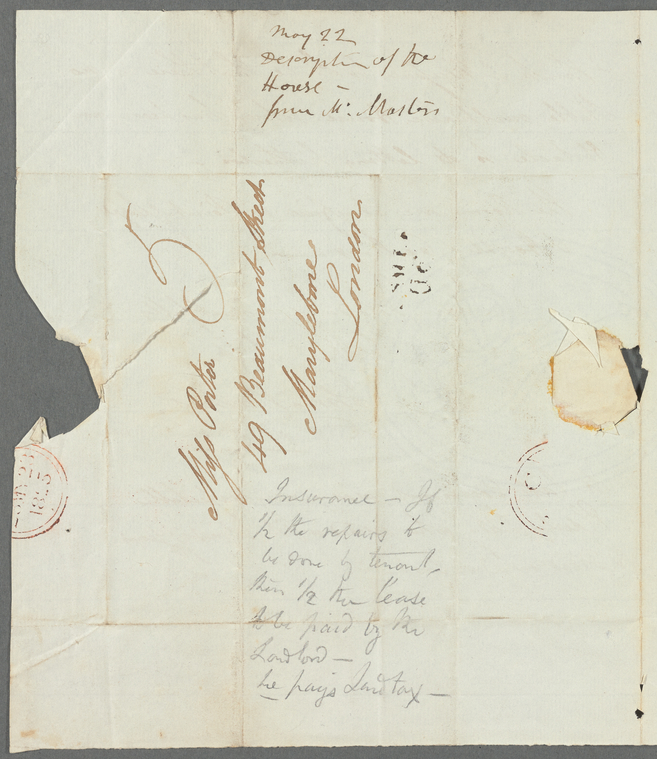 May 22
Description of the
House —
from Mr. Masters
Miss Porter
49 Beaumont Street
Marylebone
London
Insurance — If
1/2 the repairs to
be done by tenant,
then 1/2 the lease
to be paid by the
Landlord —
he pays Land tax —